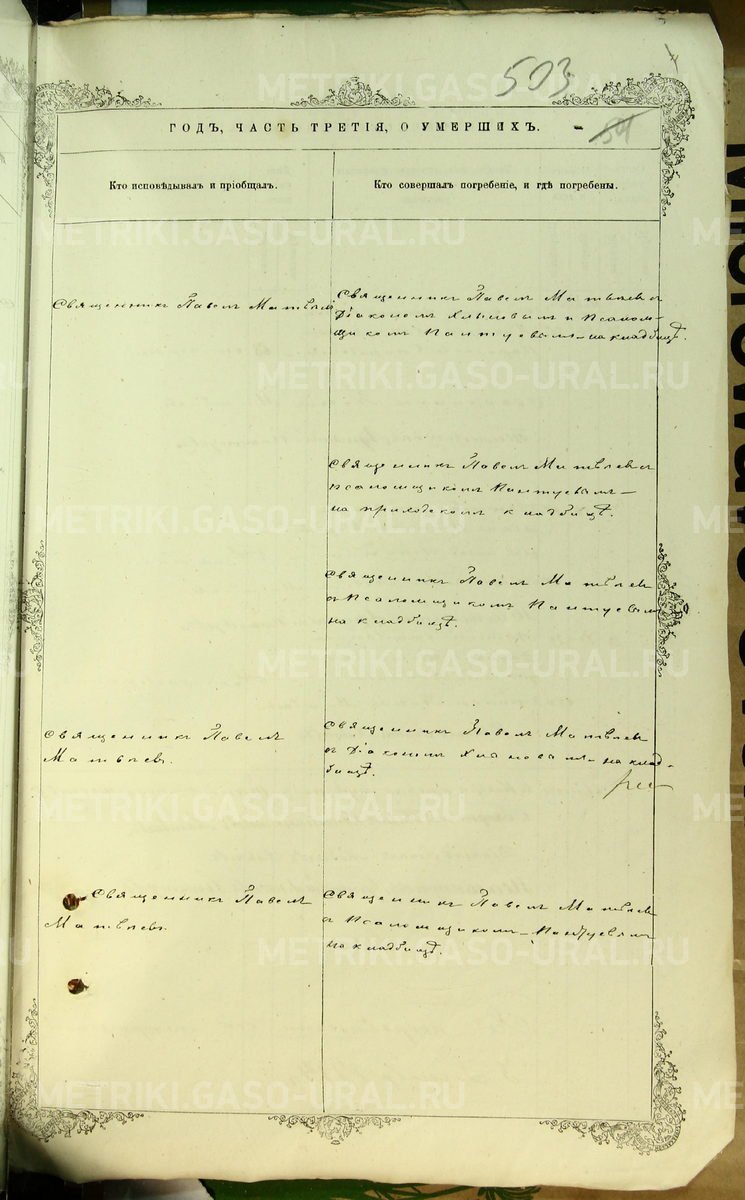 503
54
ГОДЪ, ЧАСТЬ ТРЕТІЯ, О УМЕРШИХЪ.
Кто исповѣдывалъ и пріобщалъ.
Кто совершалъ погребеніе, и гдѣ погребены.
Священникъ Павелъ Матвѣевъ
Священникъ Павелъ Матвѣевъ съ
Діакономъ и Псалом-
щикомъ Пантуевымъ на кладбищѣ.
Священникъ Павелъ Матвѣевъ съ
псаломщикомъ Пантуевымъ
на приходскомъ кладбищѣ.
Священникъ Павелъ Матвѣевъ
съ Псаломщикомъ Пантуевымъ
на кладбищѣ.
Священникъ Павелъ
Матвѣевъ.
Священникъ Павелъ Матвѣев
съ Діакономъ на клад-
бищѣ.
Священникъ Павелъ
Матвѣевъ.
Священникъ Павелъ Матвѣев
съ Псаломщикомъ Пантуевымъ
на кладбищѣ.
METRIKI.GASO-URAL.RU